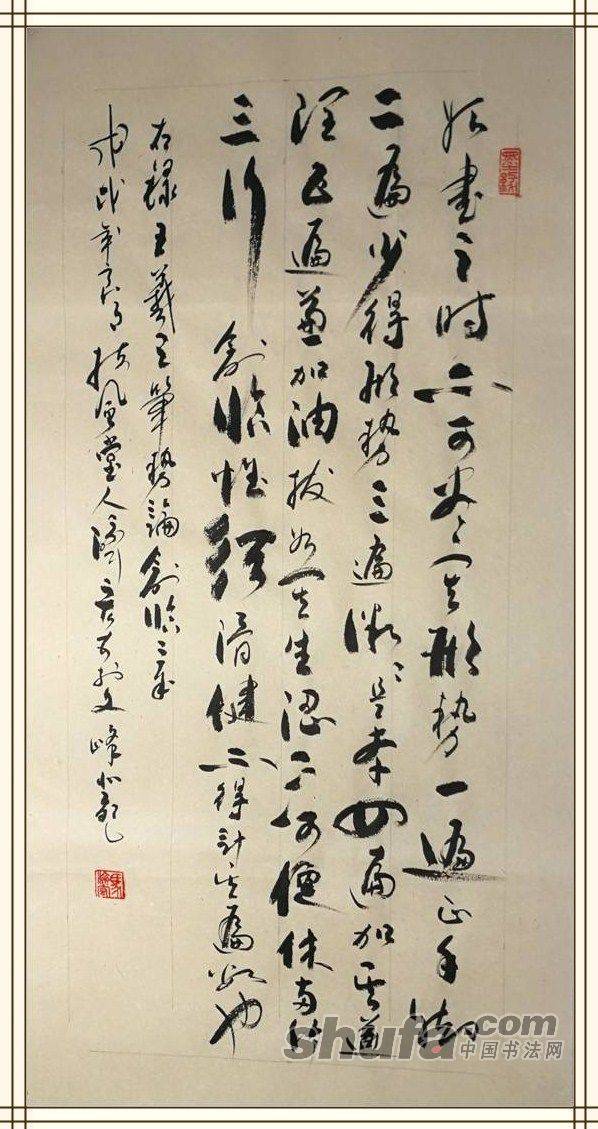 始書之時不可盡其形勢一遍正手腳
二遍少得形勢三遍微〻似本四遍加其遒
潤五遍兼加抽拔如其生澀不可便休兩行
三行創臨惟須滑健不得計其遍數也
右録王羲之筆勢論創臨章
戊戌年良月扶風堂人於文峰
shufa.com
中国书法网